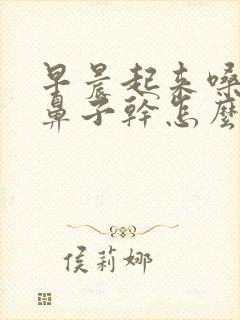 早晨起来嗓
鼻子幹怎麼
侯莉娜